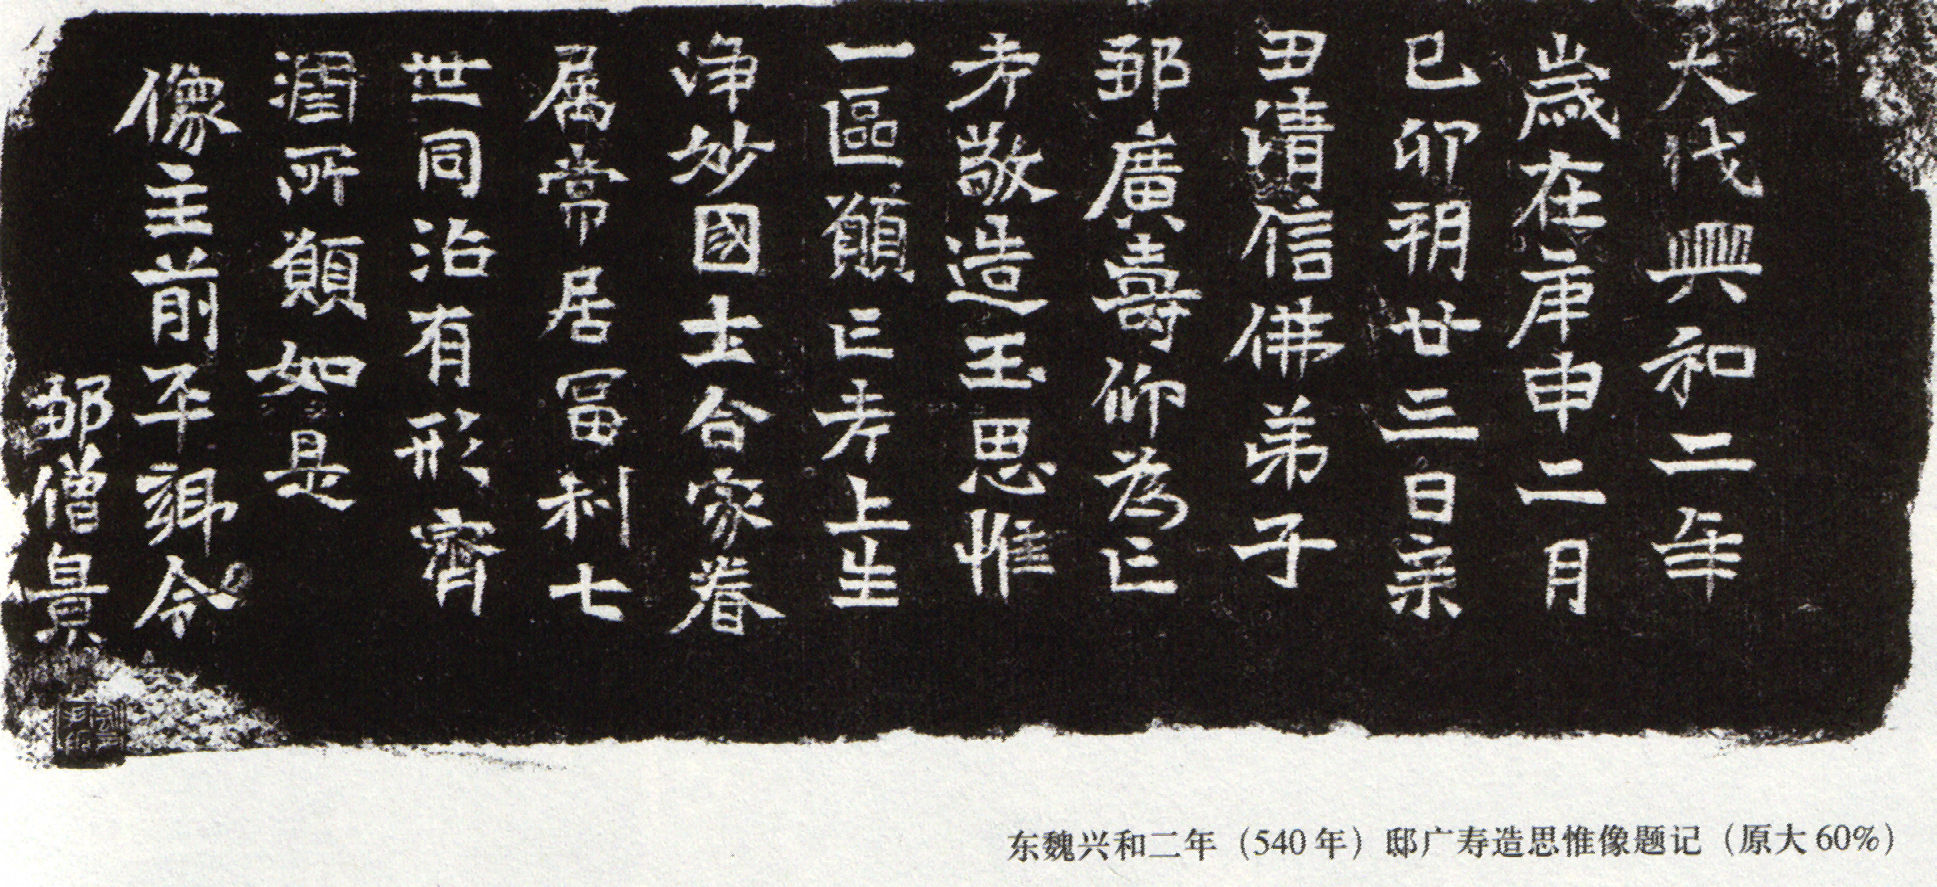 大代興和二年
歲在庚申二月
已卯朔廿三日亲
田清信佛弟子
邸廣壽仰為亡
考敬造玉思惟
一區願亡考上生
淨妙國土合家眷
属常居冨利七
世同沾有形齊
潤所願如是
像主前平令
邸僧
东魏兴和二年（540年）邸广寿造思惟像题记（原大60%）